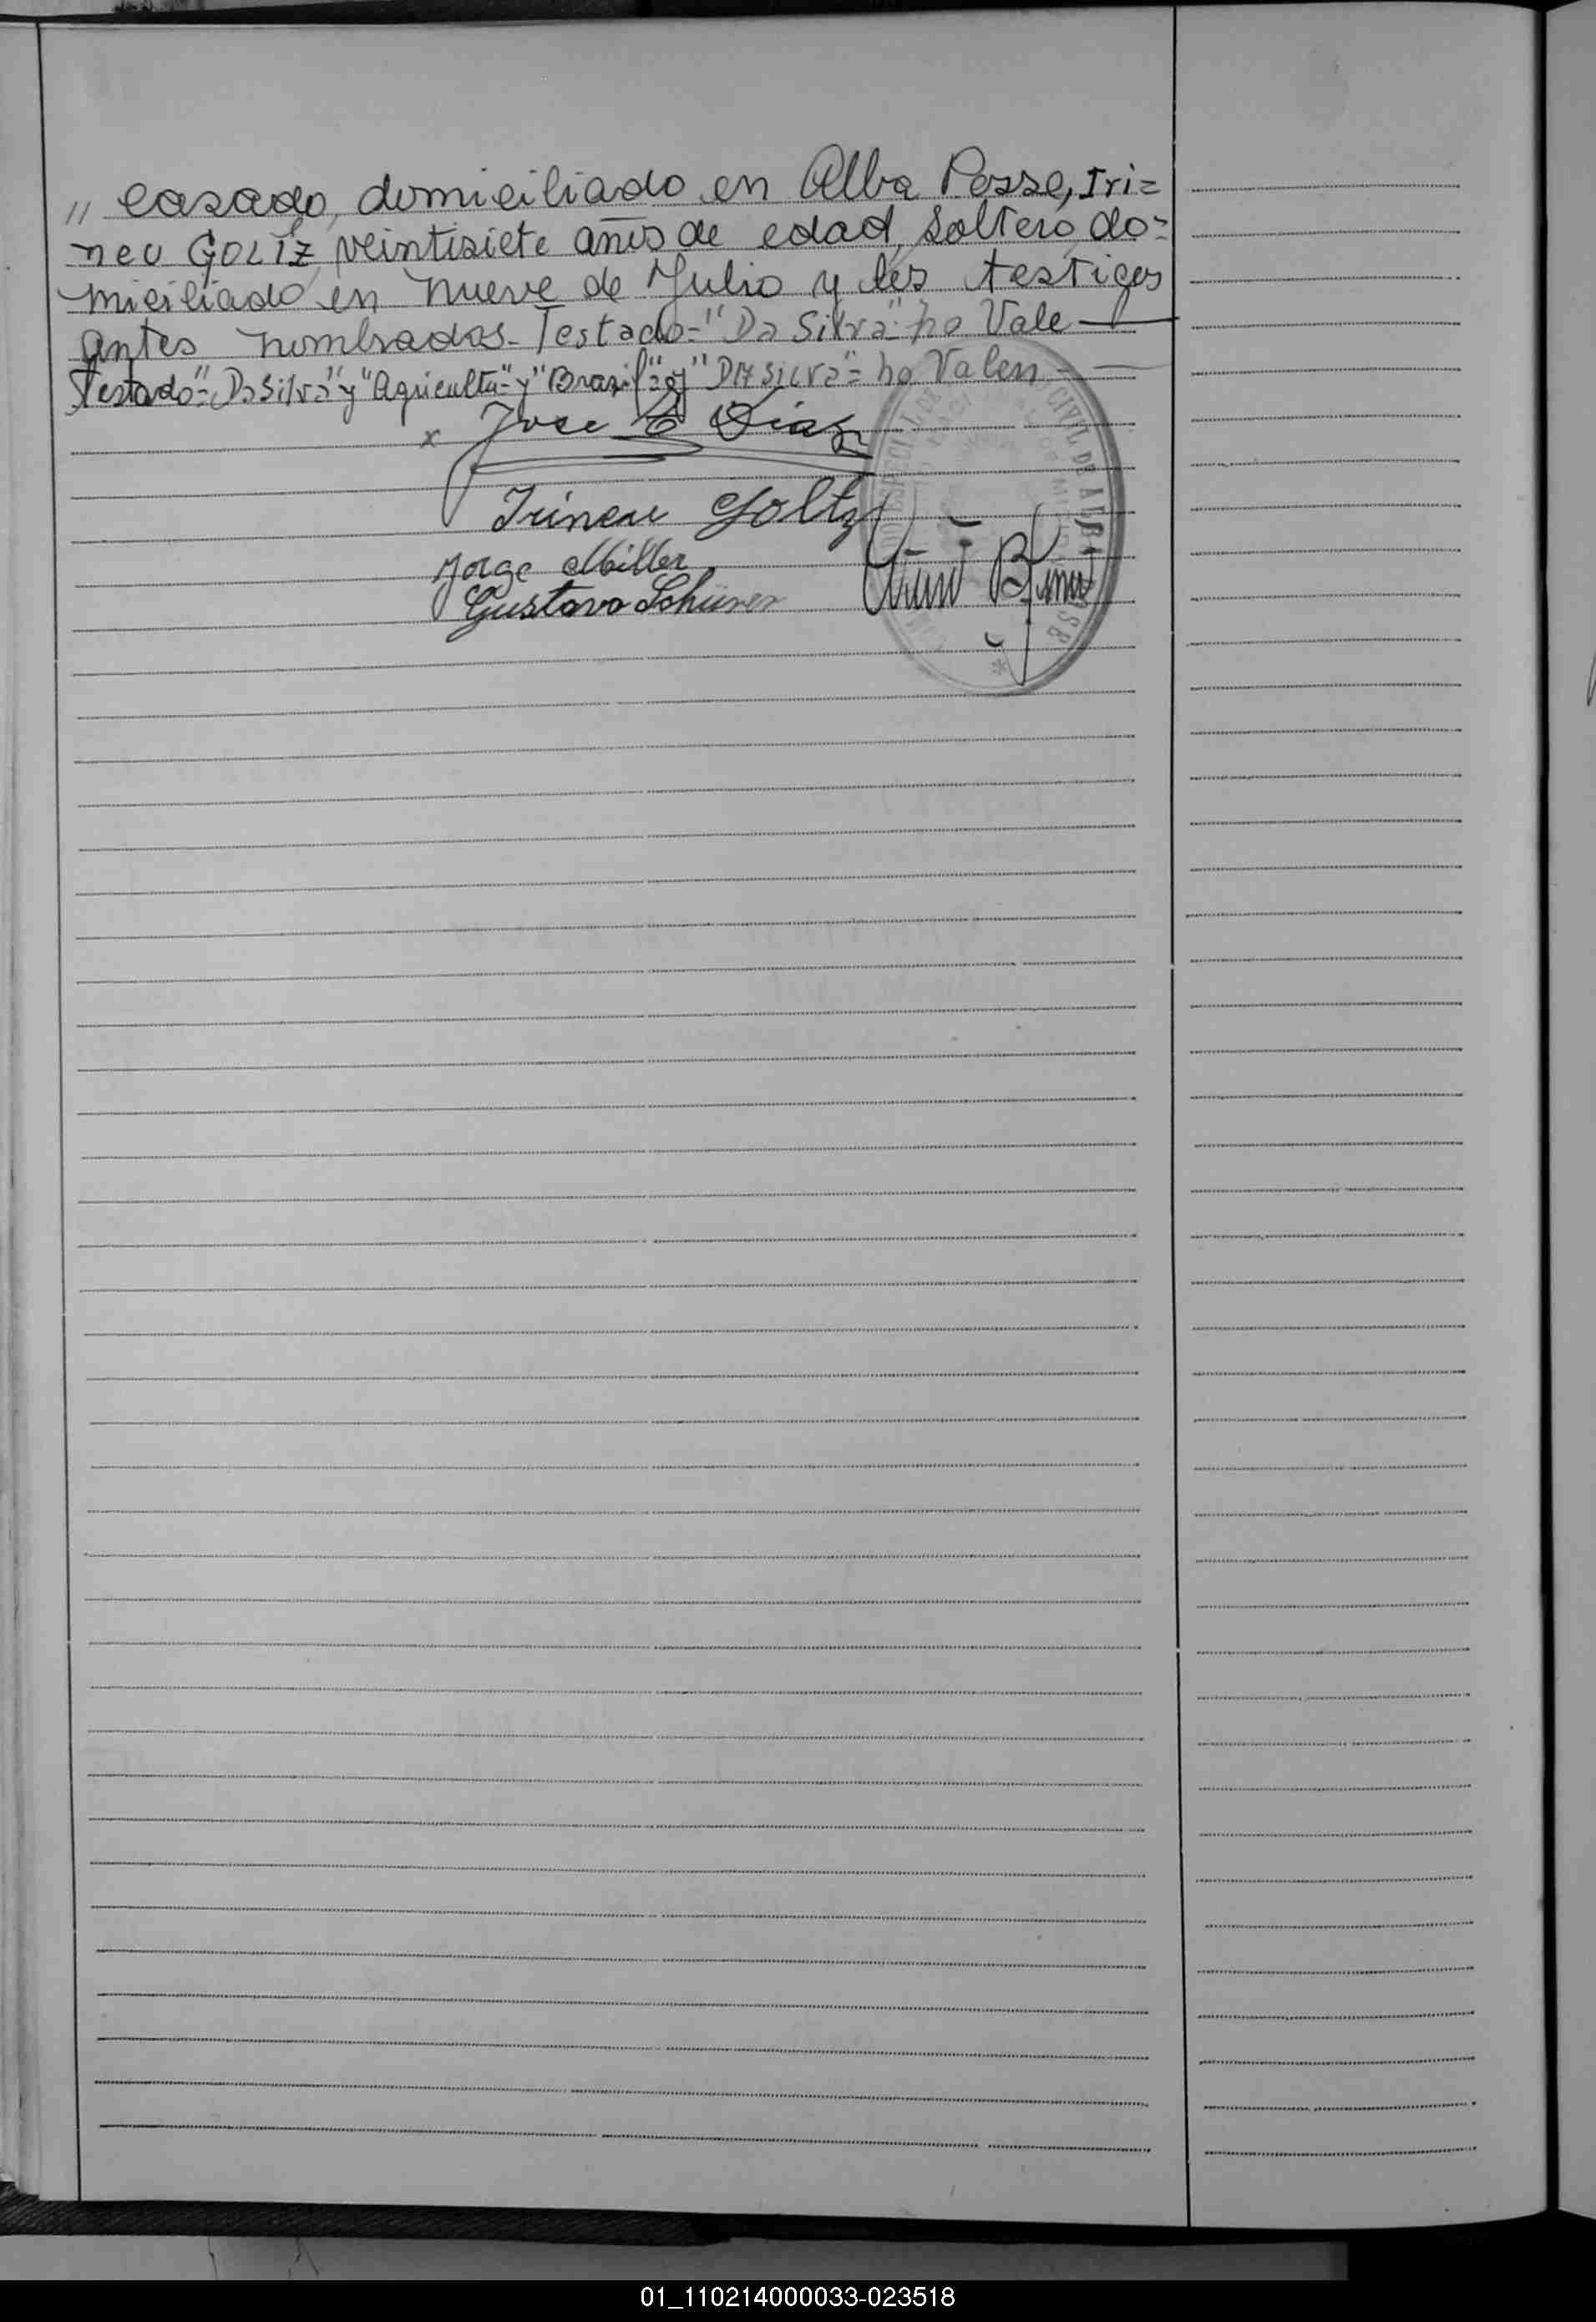 // casado, domiciliado en Alba Posse, Iri=
neu GOLTZ, veintisiete años de edad, soltero, do=
miciliado en Nueve de Julio y los testigos
antes nombrados. Testado="Da Silva": no Vale —
Testado="Da Silva" y "Agriculta=" y "Brasil"= y "DA Silva"= no Valen — —
x Jose E Diaz
Irineu Goltz
Jorge Miller
Gustavo
CIVIL DE ALBA
01_110214000033-023518